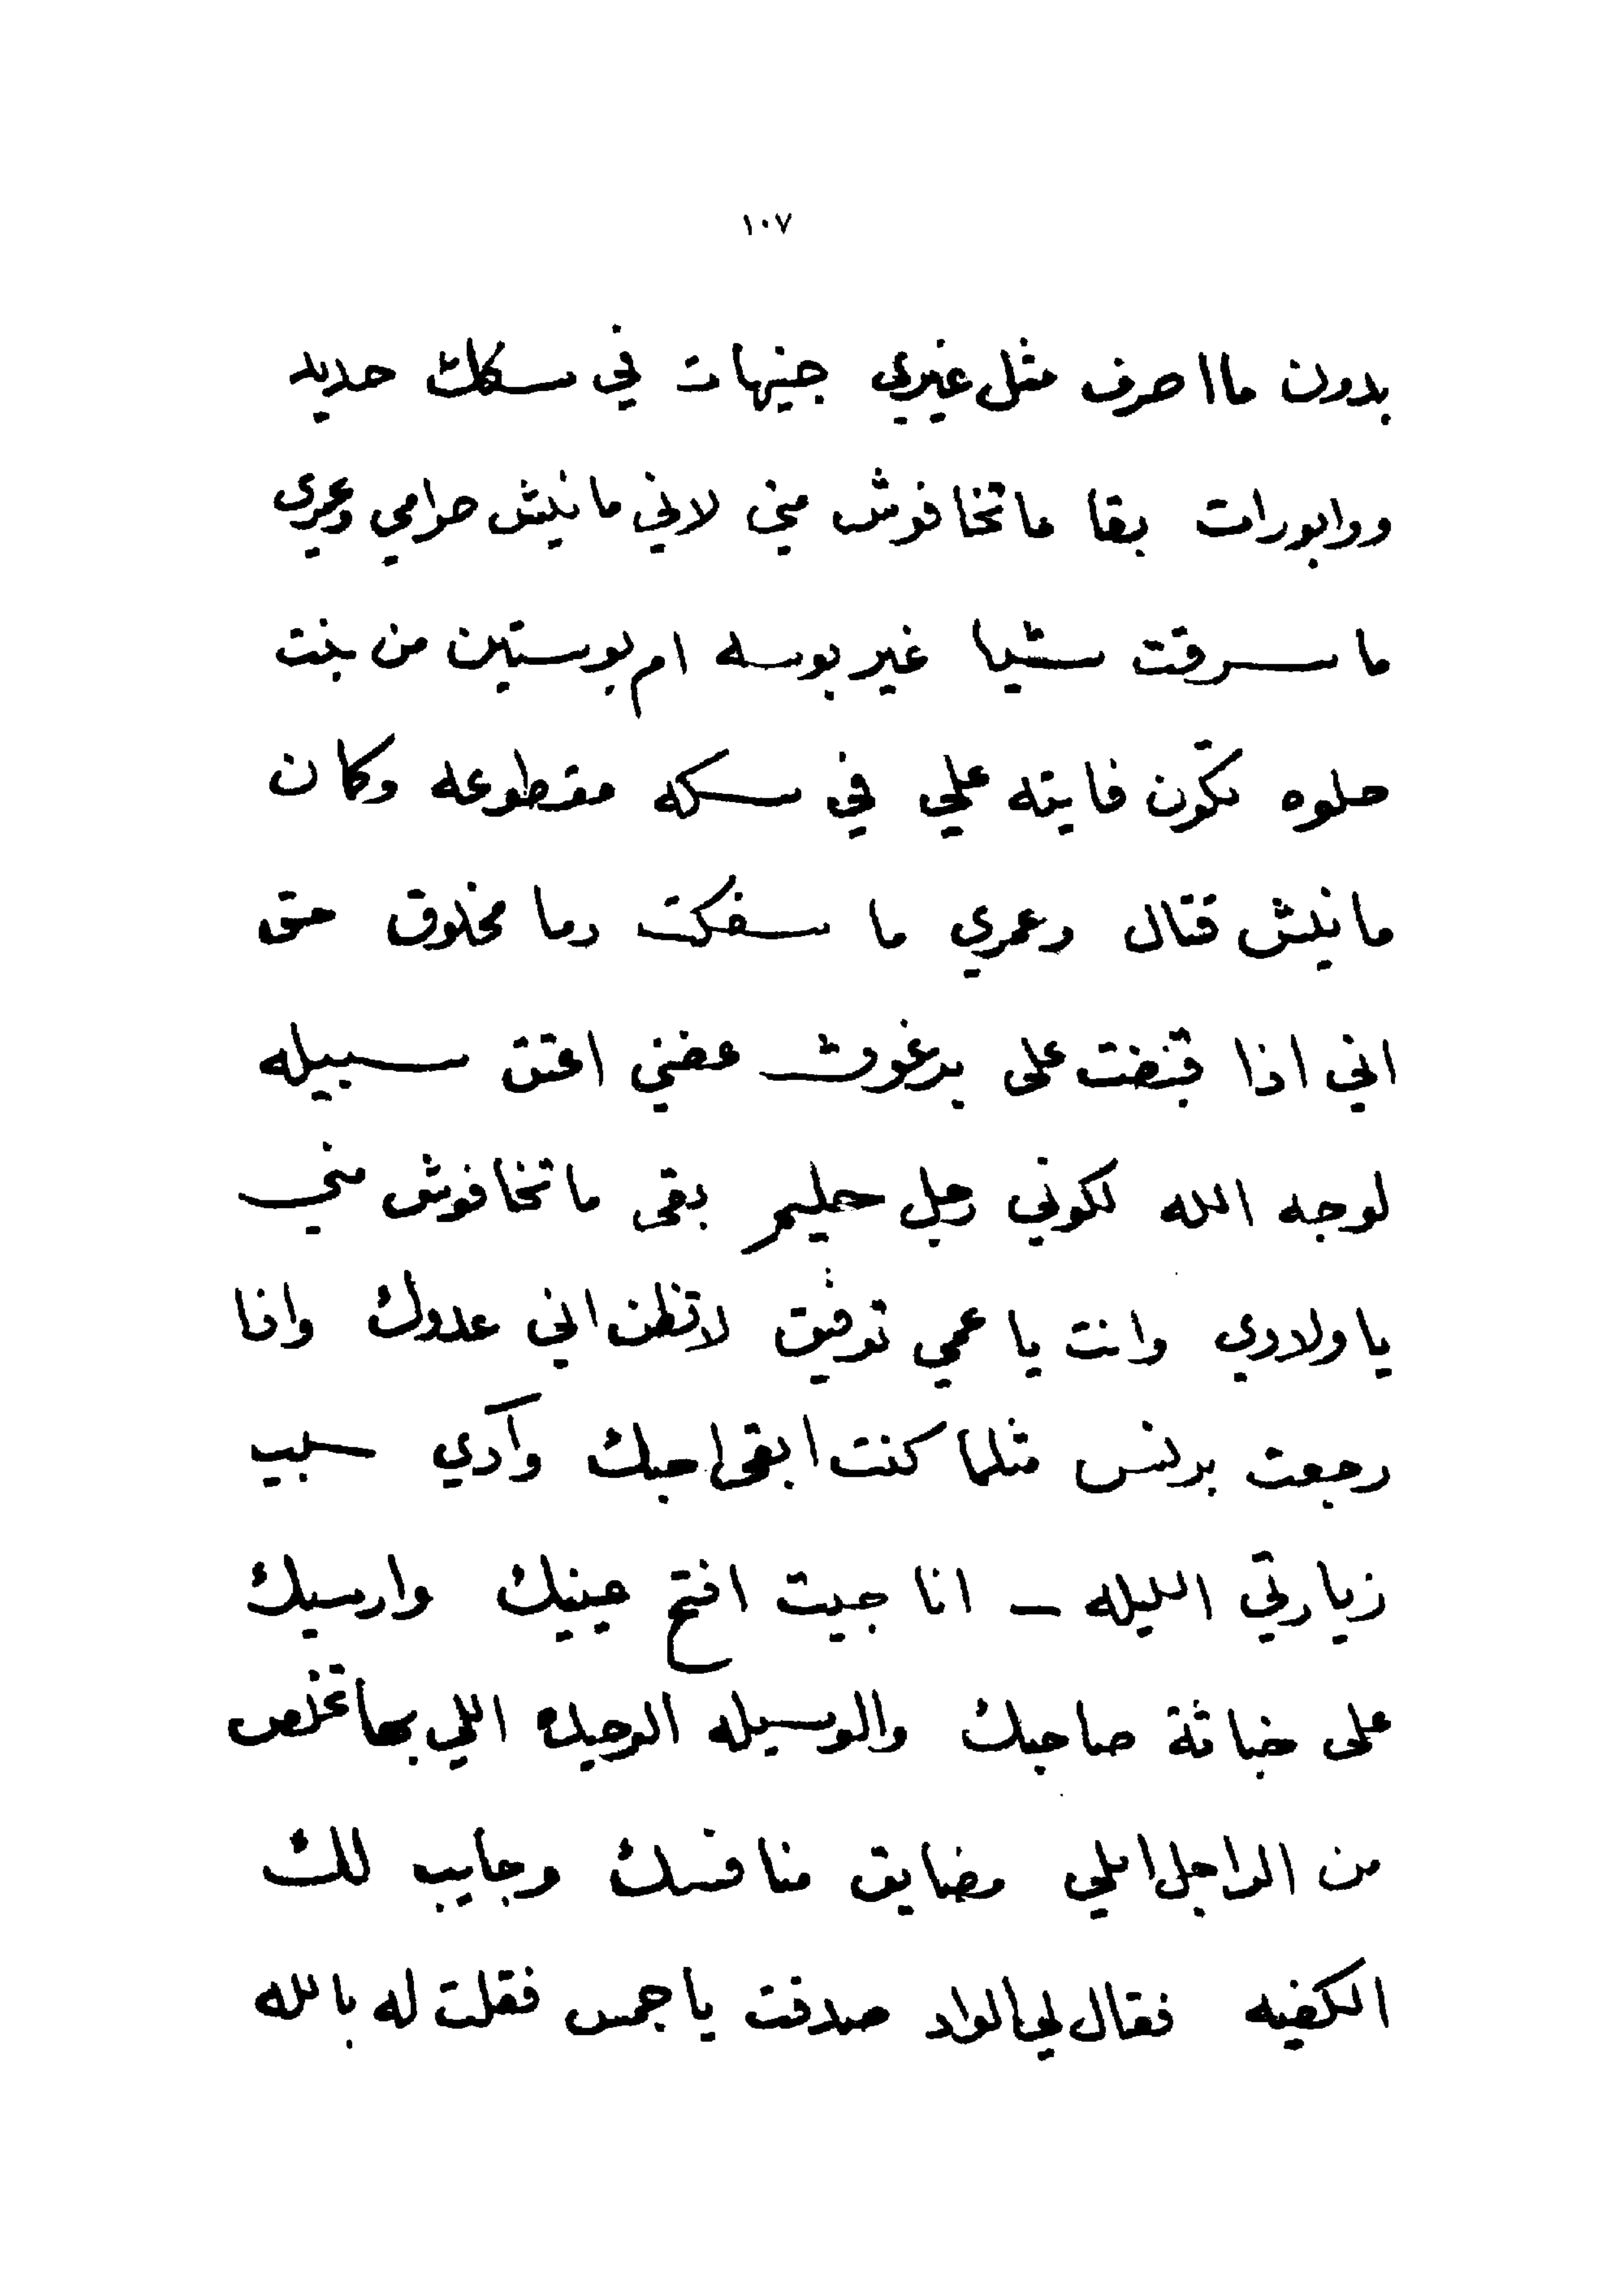 ١٠٧
بدون ما اصرف مثل غيري جنيهات في سكك حديد
ووابورات بقا ماتخافوش مني لاني مانيش حرامي وعمري
ما سرقت شيا غير بوسه ام بوستين من بنت
حلوه تكون فايته علي في سكه مقطوعه وكان
مانيش قتال وعمري ما سفكت دما مخلوق حتى
اني اذا قبضت على برغوث عضني اعتق سبيله
لوجه الله لكوني رجل حليم بقى ماتخافوش مني
ياولادي وانت يا عمي توفيق لاتظن اني عدوك واذا
رجعت برنس مثلما كنت ابقى احبك وآدي سبب
زيارتي الليله ـ انا جيت افتح عينيك وارسيك
على خباثة صاحبك والوسيله الوحيده اللي بها تخلص
من الراجل اللي مضايق منافسك وجايب لك
الكفيه فقال لي الواد صدقت ياجمس فقلت له بالله